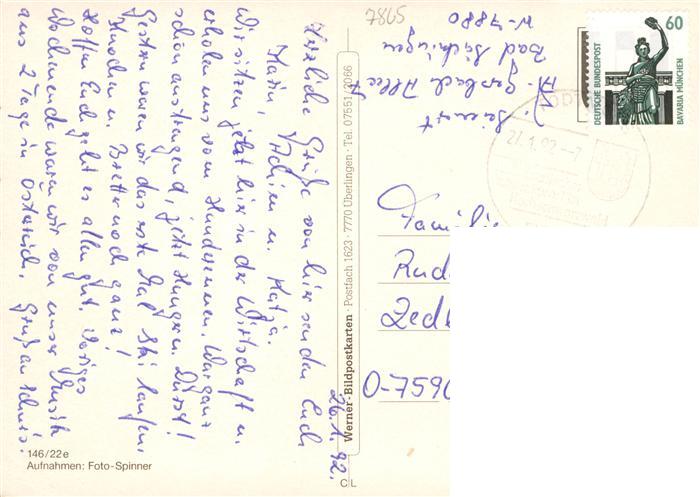 26.1.92.
Herzliche Grüße von hier senden Euch
Karin, Achim u. Katja.
Wir sitzen jetzt hier in der Wirtschaft u.
erholen uns vom Hunderennen. War ganz
schön anstrengend, jetzt Hunger u. Durst!
Gestern waren wir das erste Mal Ski laufen,
Knochen u. Bretter noch ganz!
Hoffen Euch geht es allen gut. Voriges
Wochenende waren wir von unser Musik
aus 2 Tage in Österreich. Gruß an Schmis.
146/22e
Aufnahmen: Foto-Spinner
Werner-Bildpostkarten · Postfach 1623 · 7770 Überlingen · Tel. 07551/2066
CL
7865
Bad Säckingen
W-7880
60
DEUTSCHE BUNDESPOST
BAVARIA MÜNCHEN
27.1.92-7
Famili
Rud
Zedl
O-7590